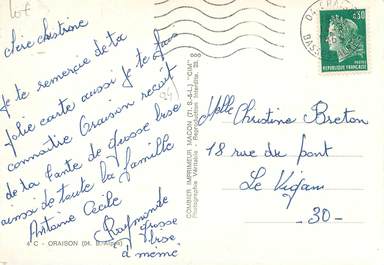 chère christine
Je te remercie de ta
jolie carte aussi je te fais
connaître Oraison reçoit
de la tante de grosse bise
ainsi de toute la famille
Antoine Cécile
Raymonde
grosse
bise
à mémé
4 C - ORAISON (04. B.-Alpes)
COMBIER IMPRIMEUR MACON (71. S.-&-L.) "CIM"
Photographie Véritable - Reproduction Interdite
0,30
REPUBLIQUE FRANÇAISE
POSTES
Melle Christine Breton
18 rue du pont
Le Vigan
- 30 -